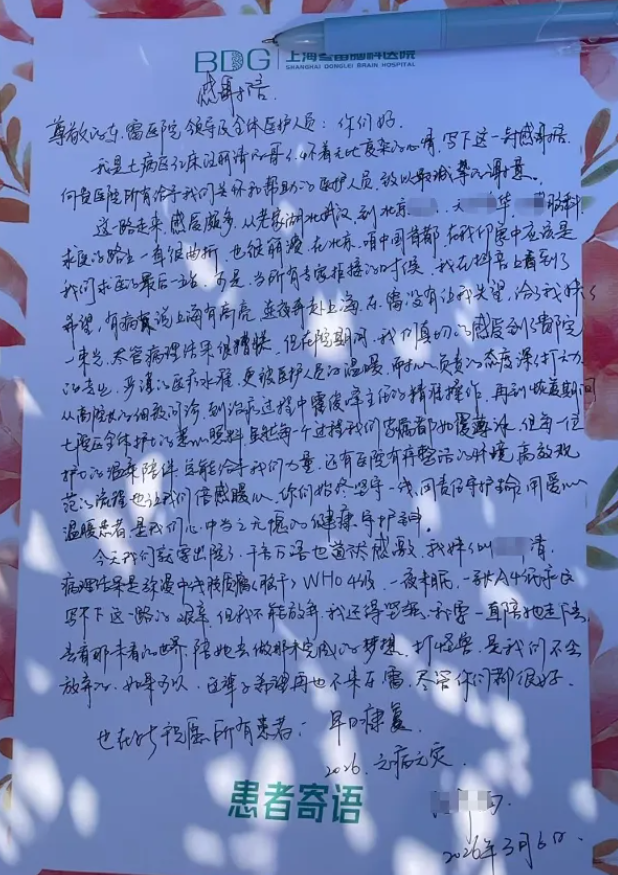 BDG 上海冬雷脑科医院
SHANGHAI DONGLEI BRAIN HOSPITAL
感谢信
尊敬的冬雷医院领导及全体医护人员：你们好
我是七病区床汪丽清的哥哥，怀着无比复杂的心情，写下这一封感谢信
向贵医院所有给予我们关怀和帮助的医护人员，致以最诚挚的谢意。
这一路走来，感慨颇多，从老家湖北武汉，到北京
求医的路上一直很曲折，也很崩溃，在北京，咱中国首都，在我们家中应该是
我们求医的最后一站，可是，当所有专家拒接的时候，我在抖音上看到了
希望，有病友说上海有高亮，连夜奔赴上海，冬雷没有让我失望，给了我妹妹
一束光，尽管病理结果很糟糕，但在院期间，我们真切的感受到了贵院
的专业，步谨的医疗水准，更被医护人员的温暖，耐心负责的态度深深打动
从南院长的细致问诊，到治疗过程中主任的精准操作，再到恢复期间
七病区全体护士的悉心照料，虽然每一个过程我们家属都如履薄冰，但每一位
护士的温柔陪伴，总能给予我们力量，还有医院有序整洁的环境，高效规
范的流程也让我们倍感暖心，你们始终坚守一线，用责任守护生命，用爱心
温暖患者，是我们心中当之无愧的健康守护神。
今天我们就要出院了，千言万语也道不尽感激，我妹叫 清，
病理结果是弥漫中线胶质瘤(脑干) WHO 4级，一夜未眠，一张A4纸永远
写不下这一路的艰辛，但我不能放弃，我还得坚强，我要一直陪她走下去
去看那未看的世界，陪她去做那未完成的梦想，打怪兽，是我们不会
放弃的，如果可以，还是希望再也不来冬雷，尽管你们都很好。
也在此祝愿所有患者：早日康复
2026，无病无灾
患者寄语
2026年3月6日